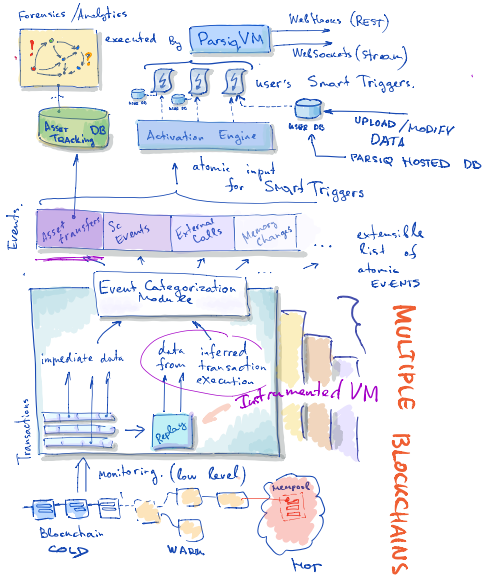 Forensics/Analytics
executed by ParsiqVM
WebHooks (REST)
WebSockets (stream)
! ?
user's Smart Triggers.
USER DB
USER DB
USER DB
UPLOAD/MODIFY
DATA
PARSIQ HOSTED DB
Asset DB
Tracking
Activation Engine
atomic input
for Smart Triggers
Events.
Asset transfers
Sc Events
External Calls
Memory Changes
...
extensible
list of
atomic
EVENTS
...
Event Categorization
Module
immediate data
data inferred
from transaction
execution
Instrumented VM
Transactions
Replay
MULTIPLE BLOCKCHAINS
monitoring. (low level)
mempool
Blockchain
COLD
WARM
HOT